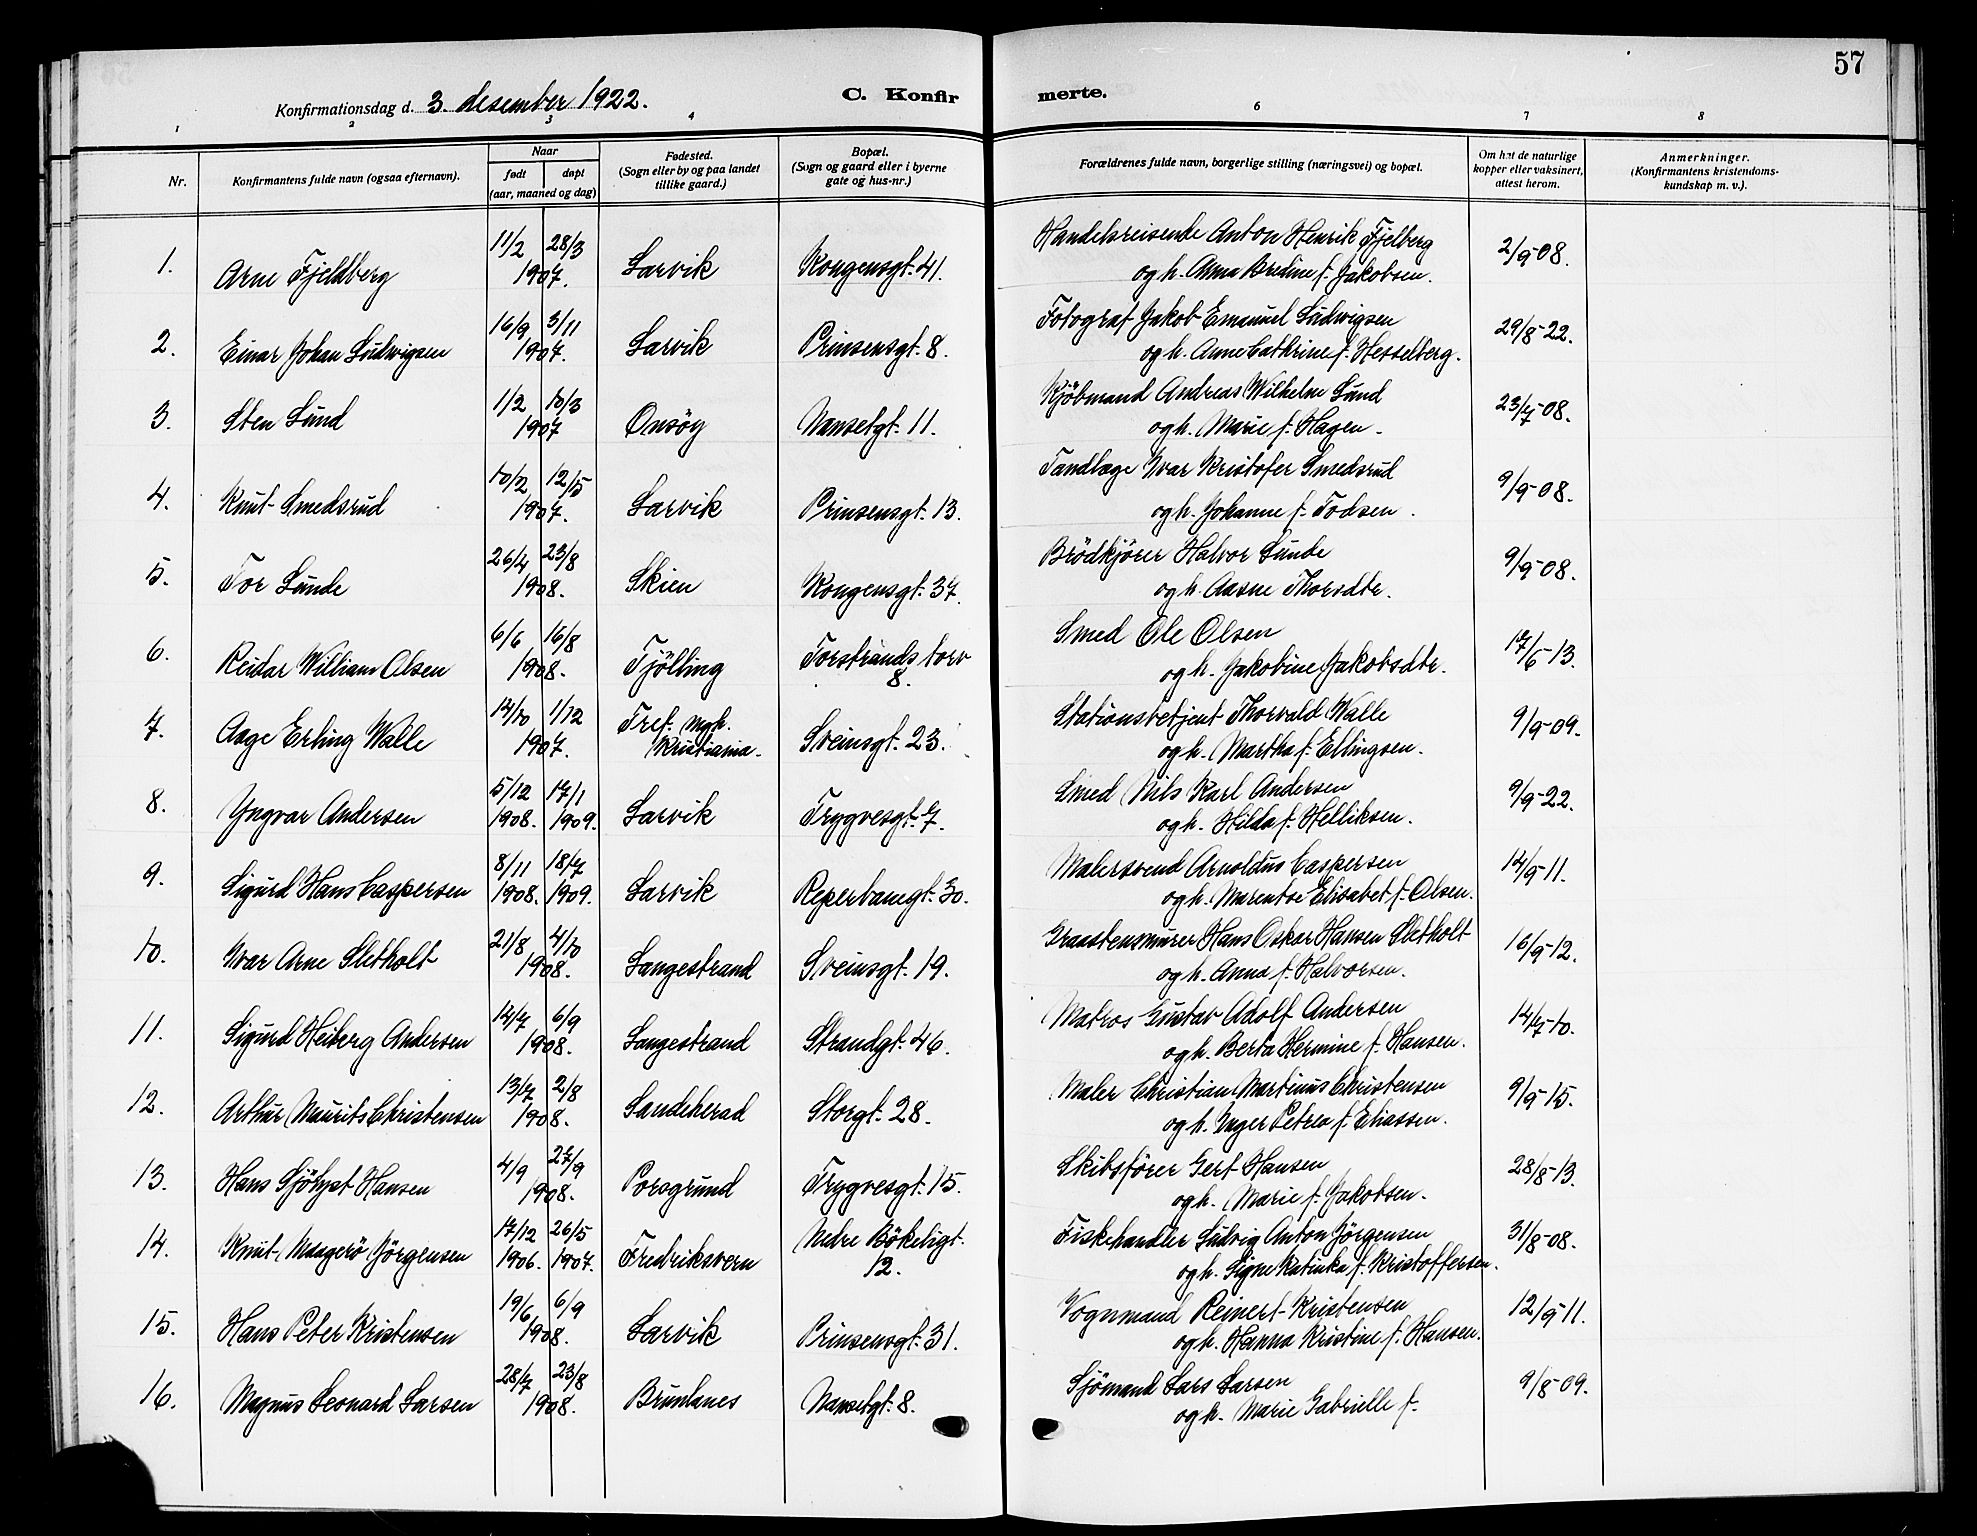 57
Konfirmationsdag d. 3. desember 1922.
C. Konfirmerte.
1 2 3 4 6 7 8
Nr.
Konfirmantens fulde navn (ogsaa efternavn).
Naar
født
døpt
(aar, maaned og dag)
Fødested.
(Sogn eller by og paa landet
tillike gaard.)
Bopæl.
(Sogn og gaard eller i byerne
gate og hus-nr.)
Forældrenes fulde navn, borgerlige stilling (næringsvei) og bopæl.
Om hat de naturlige
kopper eller vaksinert,
attest herom.
Anmerkninger.
(Konfirmantens kristendoms-
kundskap m. v.).
1. Arne Fjeldberg 11/2 28/3 1907. Larvik Kongensgt. 41. Handelsreisende Anton Henrik Fjelberg 2/9-08.
og h. Anna Bredine f. Jakobsen.
2. Einar Johan Ludwigsen 16/9 3/11 1907. Larvik Prinsensgt. 8. Fotograf Jakob Emanuel Ludwigsen 29/8-22.
og h. Anne Cathrine f. Hesselberg.
3. Sten Lund 1/2 10/3 1907 Onsöy Nansetgt. 11. Kjöbmand Andreas Wilhelm Lund 23/7-08.
og h. Marie f. Hagen.
4. Knut Smedsrud 10/2 12/5 1907. Larvik Prinsensgt. 13. Tandlæge Ivar Kristofer Smedsrud 9/9-08.
og h. Johanne f. Todsen.
5. Tor Lunde 26/4 23/8 1908. Skien Kongensgt. 37. Brödkjörer Halvor Lunde 9/9-08.
og h. Aasne Thorsdtr.
6. Reidar William Olsen 6/6 16/8 1908. Tjölling Torstrands torv 8. Smed Ole Olsen 17/6-13.
og h. Jakobine Jakobsdtr.
7. Aage Erling Walle 14/10 1/12 1907. Tref. mgh. Kristiania. Sveinsgt. 23. Stationsbetjent Thorvald Walle 9/9-09.
og h. Martha f. Ellingsen.
8. Yngvar Andersen 5/12 1908. 17/1 1909. Larvik Trygvesgt. 7. Smed Nils Karl Andersen 9/9-22.
og h. Hilda f. Helliksen.
9. Sigurd Hans Caspersen 8/11 1908. 18/7 1909. Larvik Reperbanegt. 30. Malersvend Arnoldus Caspersen 14/9-11.
og h. Marentse Elisabet f. Olsen.
10. Ivar Arne Sletholt 21/8 4/10 1908. Langestrand Sveinsgt. 19. Graastensmurer Hans Oskar Hansen Sletholt 16/9-12.
og h. Anna f. Halvorsen.
11. Sigurd Heiberg Andersen 14/7 6/9 1908. Langestrand Strandgt. 46. Matros Gustav Adolf Andersen 14/7-10.
og h. Berta Hermine f. Hansen.
12. Arthur Maurits Christensen 13/7 2/8 1908. Sandeherad Storgt. 28. Maler Christian Martinus Christensen 9/9-15.
og h. Inger Petrea f. Eliassen.
13. Hans Sjöhyst Hansen 4/9 27/9 1908. Porsgrund Trygvesgt. 15. Skibsförer Gert Hansen 28/8-13.
og h. Marie f. Jakobsen.
14. Knut Maagerö Jörgensen 17/12 1906. 26/5 1907. Fredriksvern Nedre Bökeligt. 12. Fiskehandler Ludvig Anton Jörgensen 31/8-08.
og h. Signe Katinka f. Kristoffersen.
15. Hans Peter Kristensen 19/6 6/9 1908. Larvik Prinsensgt. 31. Vognmand Reinert Kristensen 12/9-11.
og h. Hanna Kristine f. Hansen.
16. Magnus Leonard Larsen 28/7 23/8 1908. Brunlanes Nansetgt. 8. Sjömand Lars Larsen 9/8-09.
og h. Marie Gabrielle f.